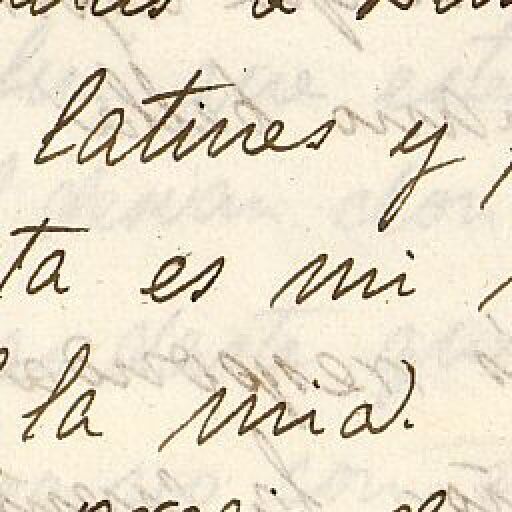 latines y
ta es mi
la mia.